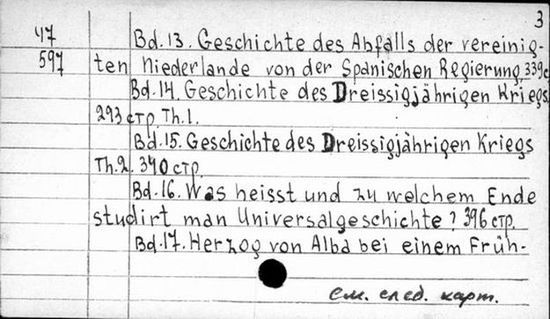 3
47
597
Bd. 13. Geschichte des Abfalls der vereinig-
ten Niederlande von der Spanischen Regierung 339 с
Bd. 14. Geschichte des Dreissigjährigen Kriegs
293 стр. Th. 1.
Bd. 15. Geschichte des Dreissigjährigen Kriegs
Th. 2. 340 стр.
Bd. 16. Was heisst und zu welchem Ende
studirt man Universalgeschichte? 396 стр.
Bd. 17. Herzog von Alba bei einem Früh-
см. след. карт.